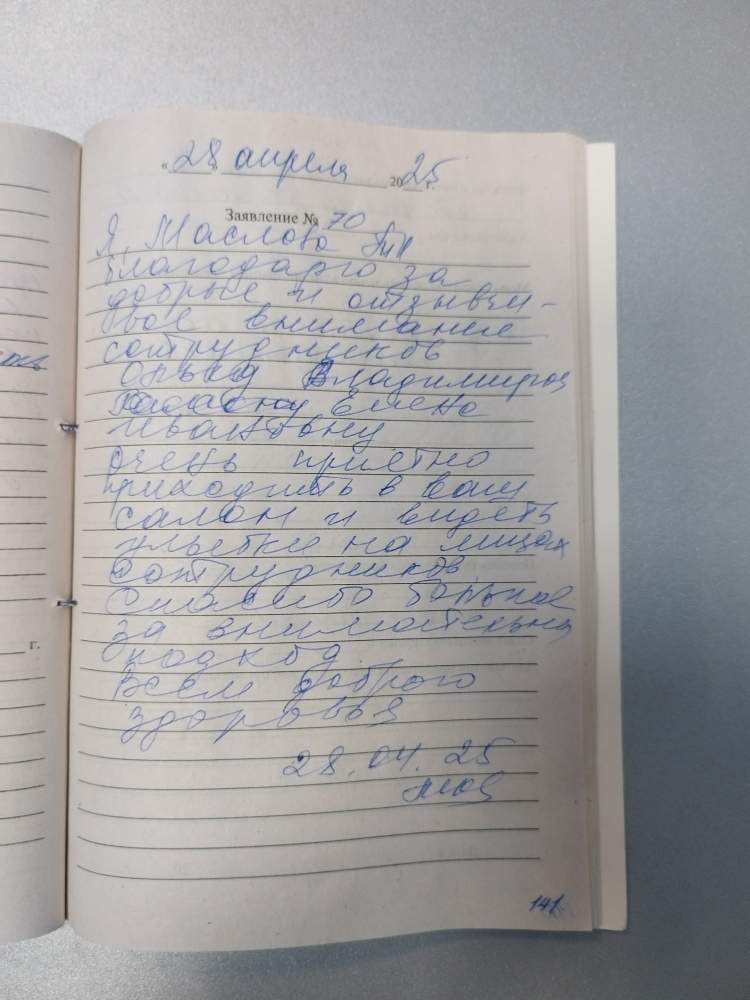 « 28 » апреля 2025 г.
Заявление № 70
Я, Маслова
благодарю за
добрые и отзывчи-
вое внимание
сотрудников
Владимиров
Елена
Ивановну
очень приятно
приходить в ваш
салон и видеть
улыбки на лицах
сотрудников
Спасибо большое
за внимательны
подход
Всем доброго
здоровья
28.04.25
г.
141